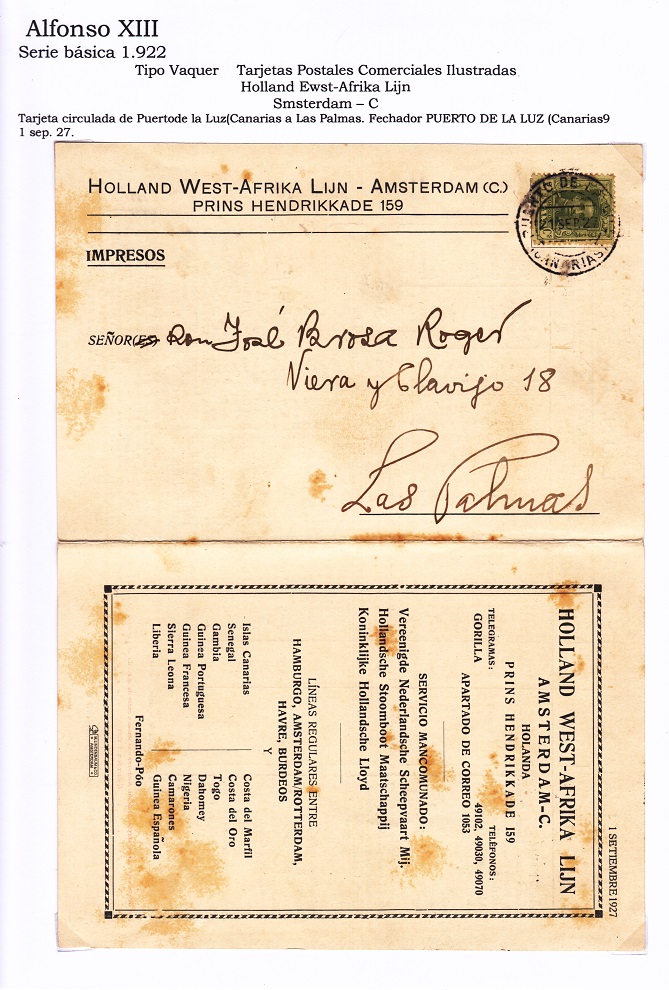 Alfonso XIII
Serie básica 1.922
Tipo Vaquer Tarjetas Postales Comerciales Ilustradas
Holland Ewst-Afrika Lijn
Smsterdam – C
Tarjeta circulada de Puertode la Luz(Canarias a Las Palmas. Fechador PUERTO DE LA LUZ (Canarias9
1 sep. 27.
HOLLAND WEST-AFRIKA LIJN - AMSTERDAM (C.)
PRINS HENDRIKKADE 159
PUERTO DE L
SEP 2
(CANARIAS)
IMPRESOS
SEÑOR(ES) Don José Brosa Roger
Viera y Clavijo 18
Las Palmas
1 SETIEMBRE 1927
HOLLAND WEST-AFRIKA LIJN
AMSTERDAM-C.
HOLANDA
PRINS HENDRIKKADE 159
TELEGRAMAS: TELÉFONOS:
GORILLA APARTADO DE CORREO 1053 49102, 49030, 49070
SERVICIO MANCOMUNADO:
Vereenigde Nederlandsche Scheepvaart Mij.
Hollandsche Stoomboot Maatschappij
Koninklijke Hollandsche Lloyd
LÍNEAS REGULARES ENTRE
HAMBURGO, AMSTERDAM/ROTTERDAM,
HAVRE, BURDEOS
Y
Islas Canarias Costa del Marfil
Senegal Costa del Oro
Gambia Togo
Guinea Portuguesa Dahomey
Guinea Francesa Nigeria
Sierra Leona Camarones
Liberia Guinea Española
Fernando-Póo